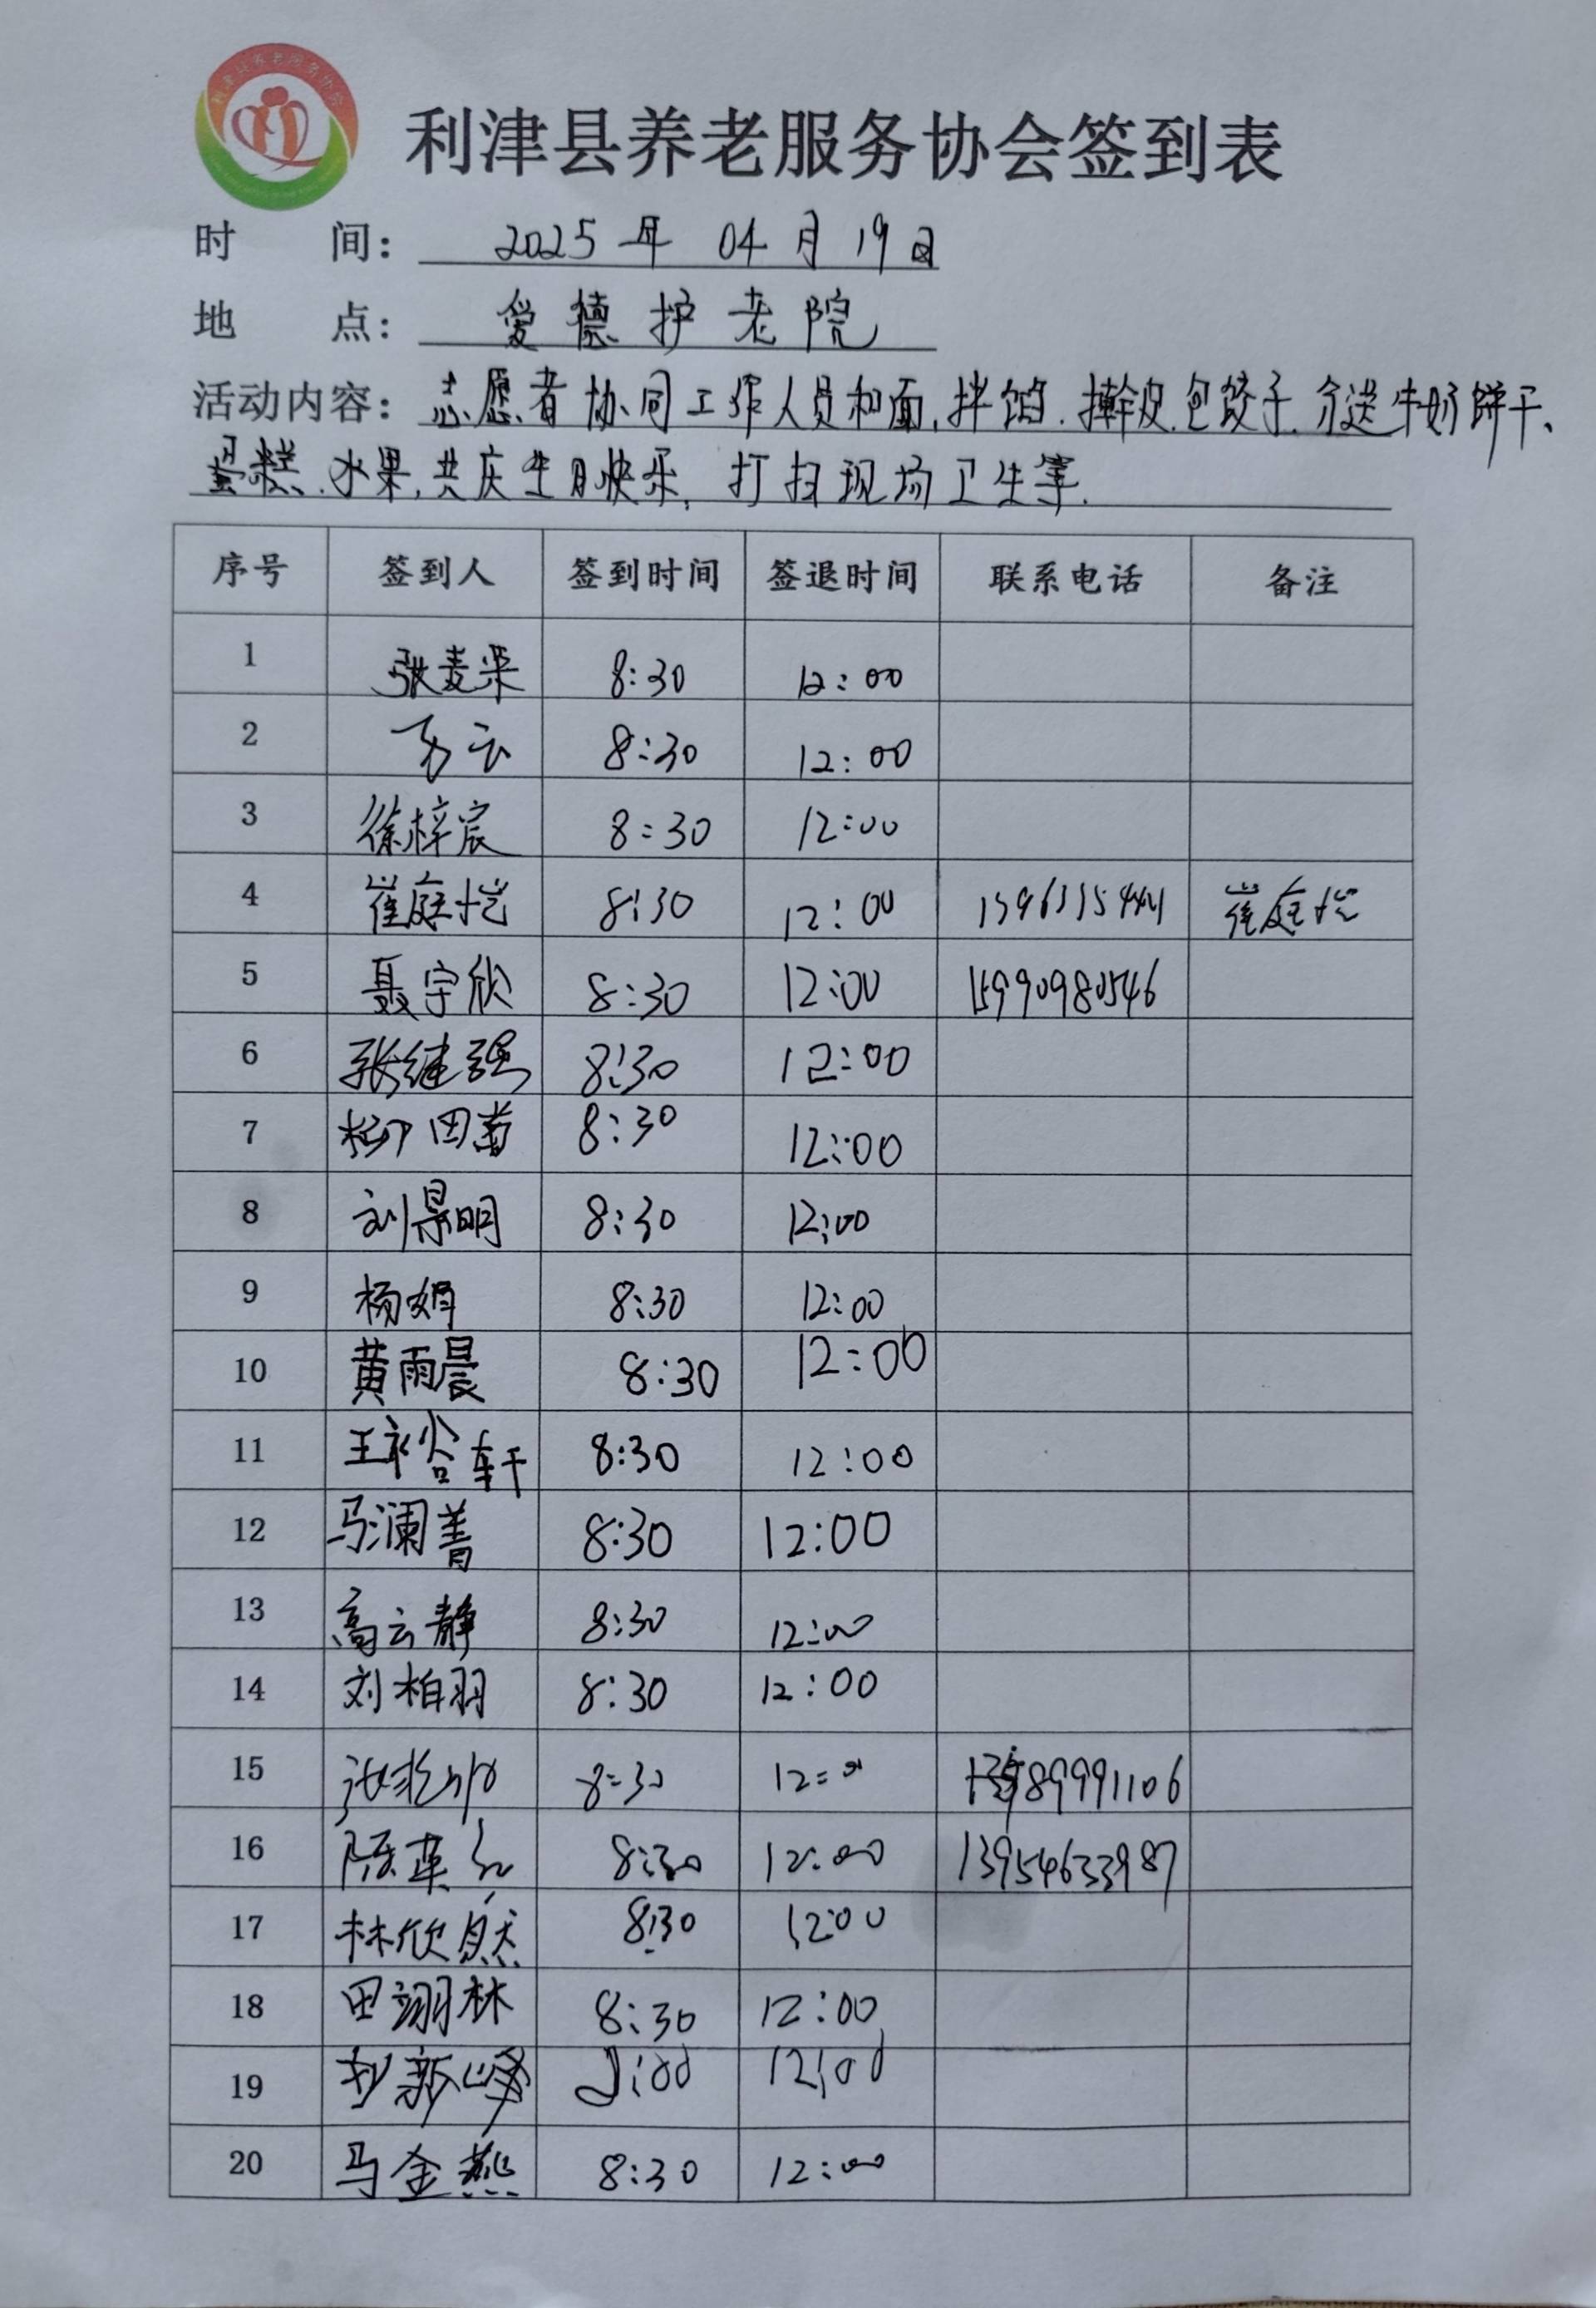 利津县养老服务协会
利津县养老服务协会签到表
时 间: 2025 年 04 月 19 日
地 点: 爱德护老院
活动内容: 志愿者协同工作人员和面,拌馅.擀皮.包饺子.分送牛奶饼干、
蛋糕.水果,共庆生日快乐,打扫现场卫生等.
序号 签到人 签到时间 签退时间 联系电话 备注
1 张麦 8:30 12:00
2 云 8:30 12:00
3 徐梓宸 8:30 12:00
4 崔庭恺 8:30 12:00 崔庭恺
5 聂宇欣 8:30 12:00 15990980546
6 张继强 8:30 12:00
7 柳田菊 8:30 12:00
8 刘景明 8:30 12:00
9 杨娟 8:30 12:00
10 黄雨晨 8:30 12:00
11 王裕轩 8:30 12:00
12 马澜菁 8:30 12:00
13 高云静 8:30 12:00
14 刘柏羽 8:30 12:00
15 8:30 12:00
16 陈莲 8:30 12:00 13954633987
17 林欣然 8:30 12:00
18 田翊林 8:30 12:00
19 新峰 12:00
20 马金燕 8:30 12:00